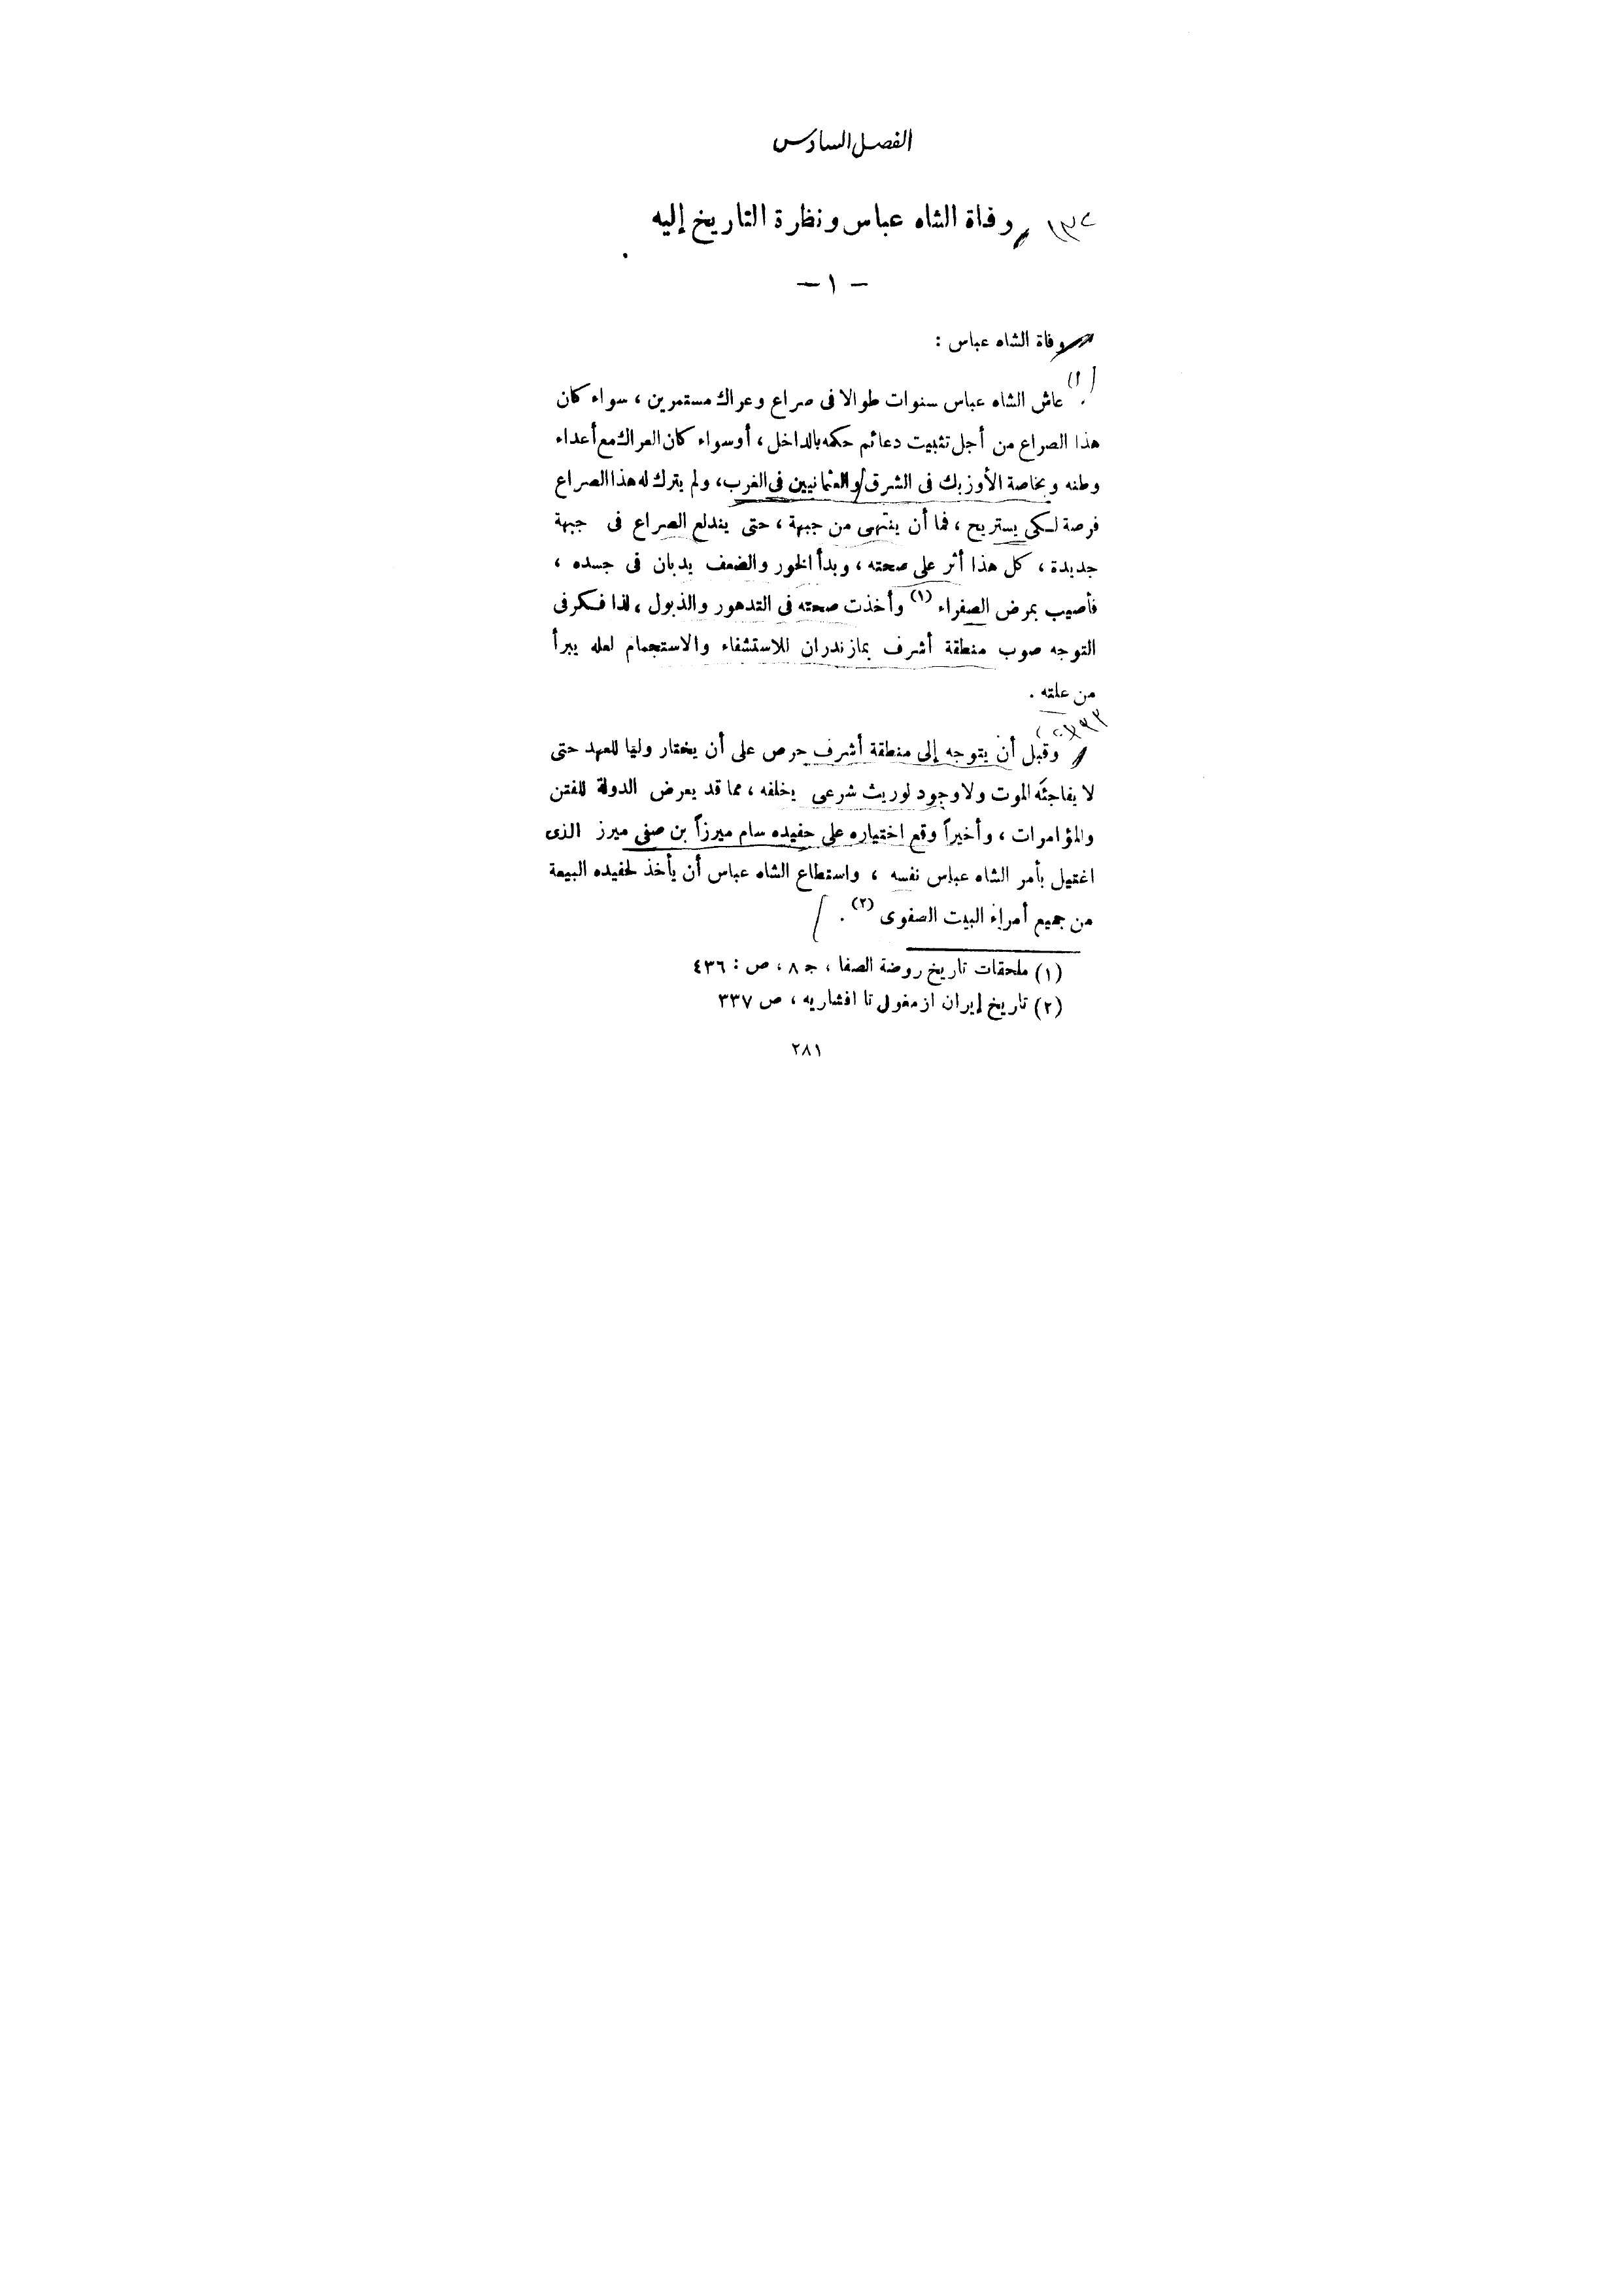 الفصل السادس
وفاة الشاه عباس ونظرة التاريخ إليه
— ١ —
وفاة الشاه عباس :
(١)
عاش الشاه عباس سنوات طوالا فى صراع وعراك مستمرين ، سواء كان
هذا الصراع من أجل تثبيت دعائم حكمه بالداخل ، أو سواء كان العراك مع أعداء
وطنه وبخاصة الأوزبك فى الشرق والعثمانيين فى الغرب ، ولم يترك له هذا الصراع
فرصة لكى يستريح ، فما أن ينتهى من جبهة ، حتى يندلع الصراع فى جبهة
جديدة ، كل هذا أثر على صحته ، وبدأ الخور والضعف يدبان فى جسده ،
فأصيب بمرض الصفراء (١) وأخذت صحته فى التدهور والذبول ، لذا فكر فى
التوجه صوب منطقة أشرف بمازندران للاستشفاء والاستجمام لعله يبرأ
من علته .
وقبل أن يتوجه إلى منطقة أشرف حرص على أن يختار وليا للعهد حتى
لا يفاجئه الموت ولا وجود لوريث شرعى يخلفه ، مما قد يعرض الدولة للفتن
والمؤامرات ، وأخيراً وقع اختياره على حفيده سام ميرزاً بن صفى ميرز الذى
اغتيل بأمر الشاه عباس نفسه ، واستطاع الشاه عباس أن يأخذ لحفيده البيعة
من جميع أمراء البيت الصفوى (٢) .
(١) ملحقات تاريخ روضة الصفا ، ج ٨ ، ص : ٤٣٦
(٢) تاريخ إيران از مغول تا افشاريه ، ص ٣٣٧
٢٨١